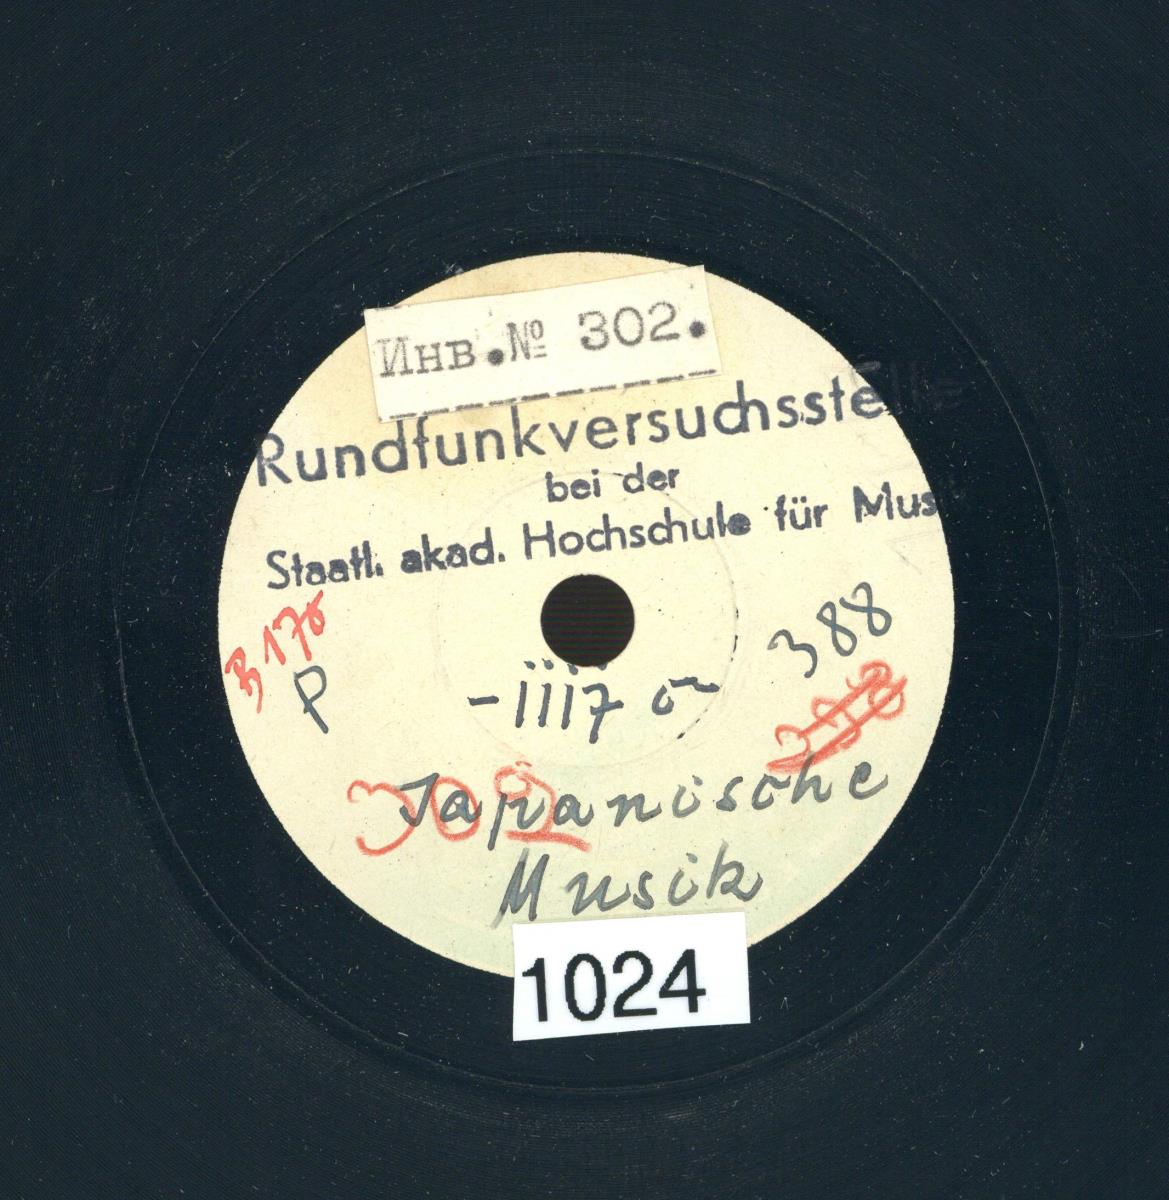 Инв.№ 302.
Rundfunkversuchsstelle
bei der
Staatl. akad. Hochschule für Mus
388
P
302
Japanische
Musik
1024